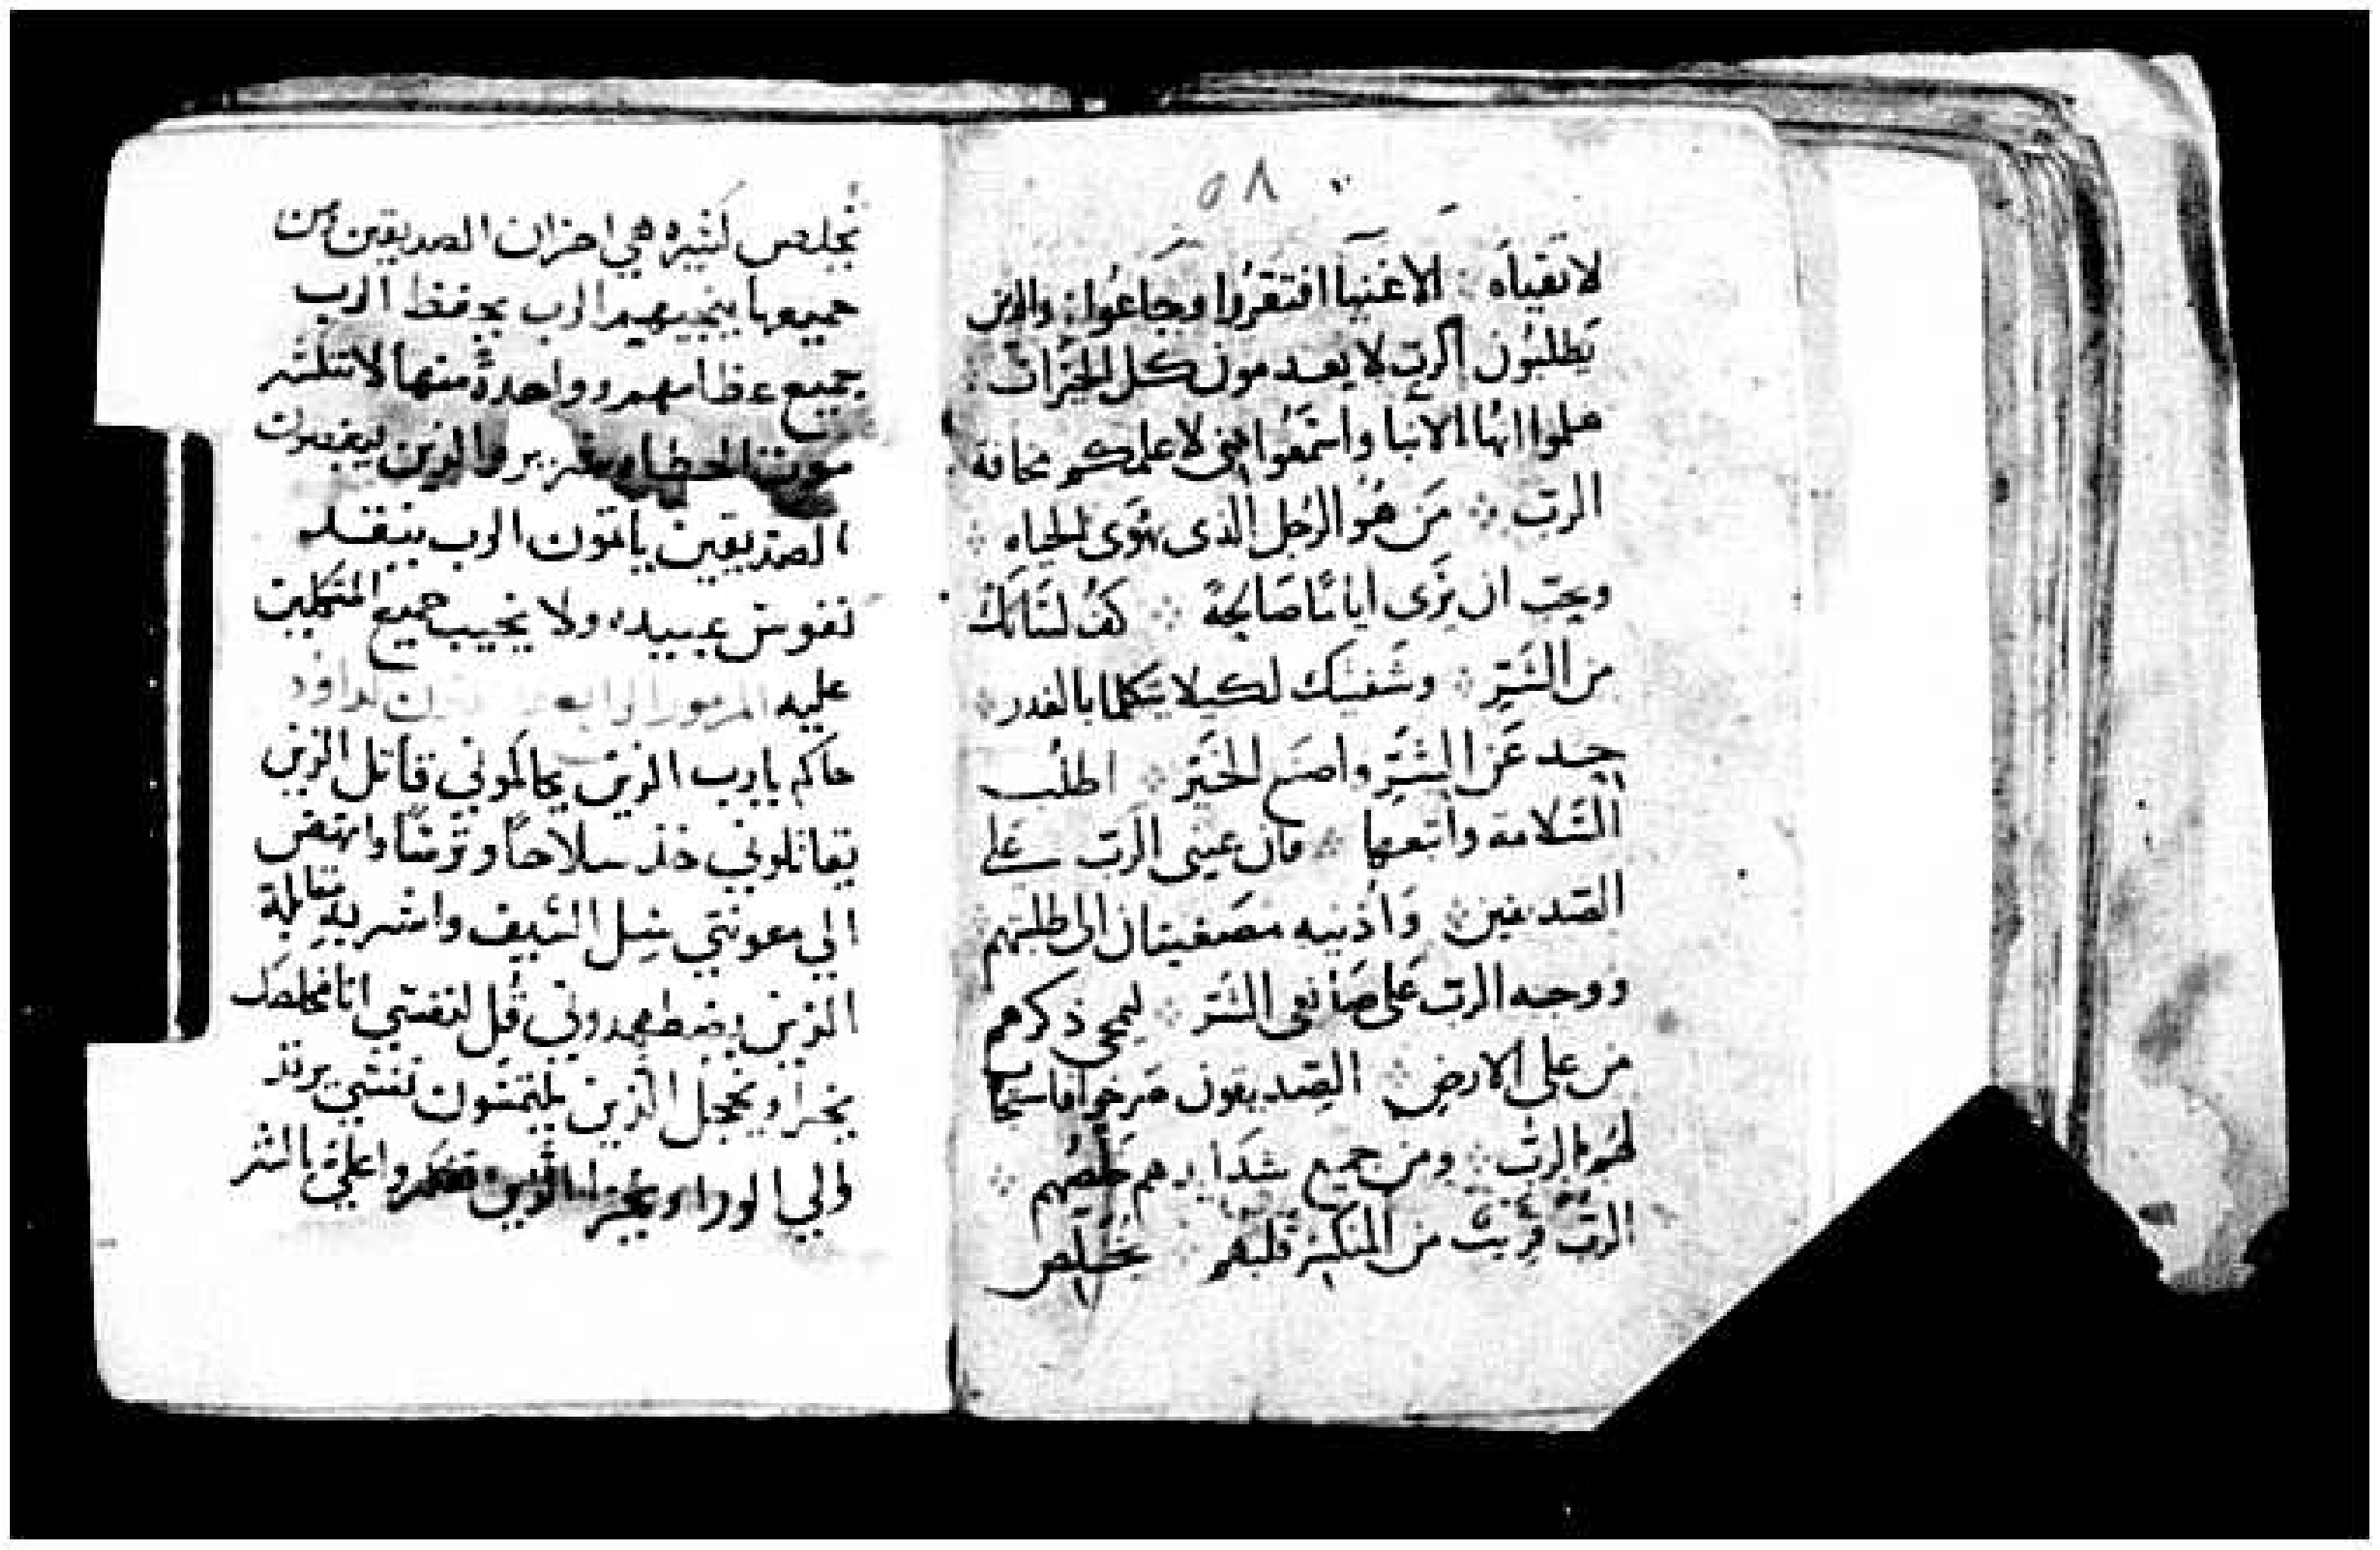 ٥٨
لاتقياه الاغنيا افتقروا وجاعوا والذين
يطلبون الرب لا يعدمون كل الخيرات
هلموا ايها الابنا واسمعوا مني لاعلمكم مخافة
الرب من هو الرجل الذى يهوى الحياه
ويحب ان يرى اياما صالحة كف لسانك
من الشر وشفتيك لكيلا يتكلما بالغدر
حيد عن الشر واصنع الخير اطلب
السلامة واتبعها فان عينى الرب على
الصديقين واذنيه مصغيتان الى طلبتهم
ووجه الرب على صانعى الشر ليمحى ذكرهم
من على الارض الصديقون صرخوا فاستجاب
لهم الرب ومن جميع شدايدهم خلصهم
الرب قريب من المنكسرة قلبهم يخلص
كثيره هي احزان الصديقين من
جميعها ينجيهم الرب يحفظ الرب
جميع عظامهم وواحدة منها لا تنكسر
موت الخطاه والذين يبغضون
الصديقين ياثمون الرب ينقد
نفوس عبيده ولا يخيب جميع المتكلين
عليه المزمور الرابع لداود
حاكم يارب الذين يحاكموني قاتل الذين
يقاتلوني خذ سلاحا وترسا وانهض
الي معونتي سل السيف واشر به مقابلة
الذين يضطهدوني قل لنفسي انا مخلصك
يخزا ويخجل الذين يلتمسون نفسي يرتد
الي الورا ويخزا الذين بالشر